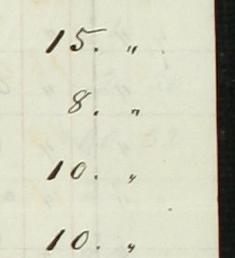 15. "
8. "
10. "
10. "